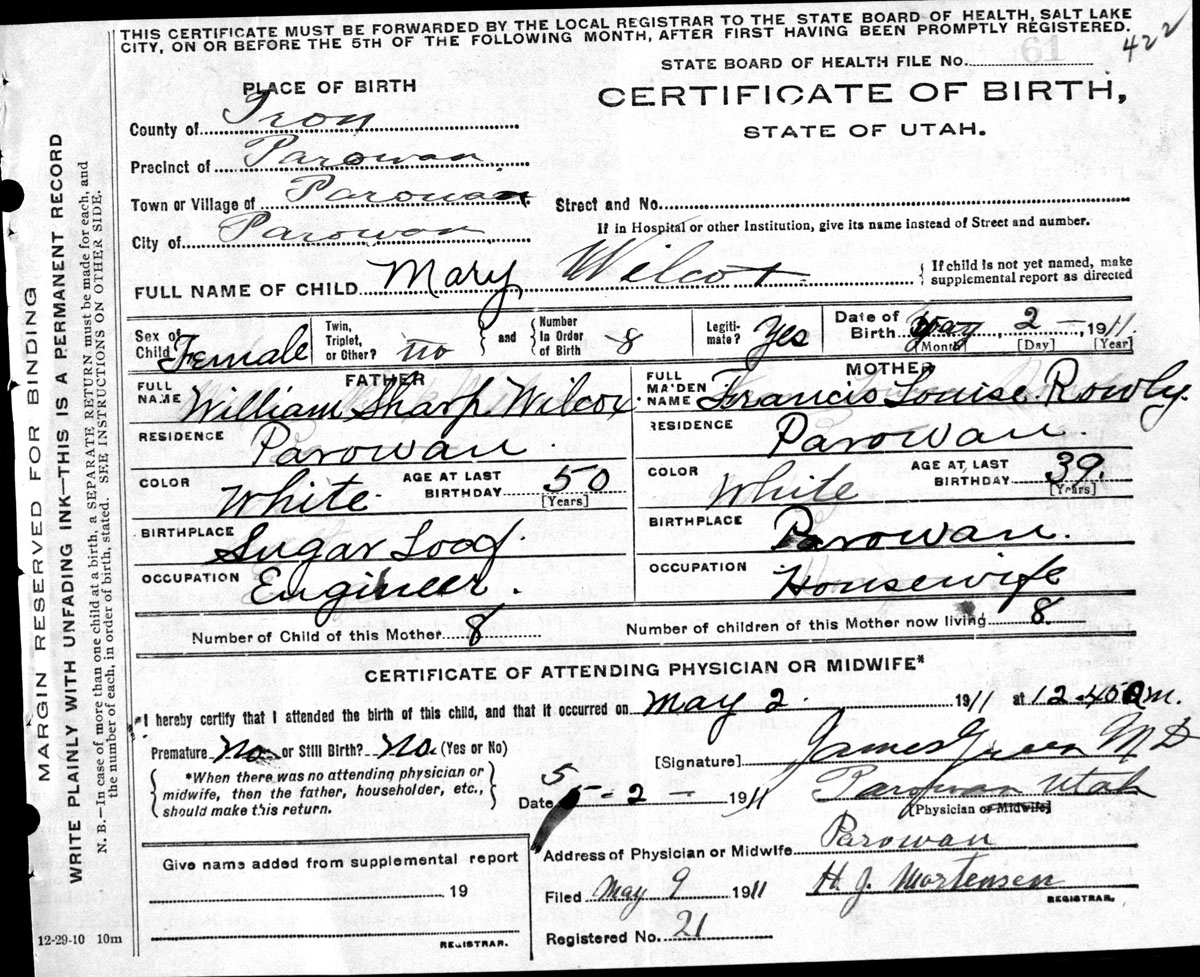 THIS CERTIFICATE MUST BE FORWARDED BY THE LOCAL REGISTRAR TO THE STATE BOARD OF HEALTH, SALT LAKE
CITY, ON OR BEFORE THE 5TH OF THE FOLLOWING MONTH, AFTER FIRST HAVING BEEN PROMPTLY REGISTERED.
422
61
STATE BOARD OF HEALTH FILE No.
PLACE OF BIRTH
CERTIFICATE OF BIRTH,
STATE OF UTAH.
County of Iron
Precinct of Parowan
Town or Village of Parowan
Street and No.
City of Parowan
If in Hospital or other Institution, give its name instead of Street and number.
FULL NAME OF CHILD Mary Wilcox
If child is not yet named, make
supplemental report as directed
Sex of Child Female
Twin, Triplet, or Other? no
and
Number In Order of Birth 8
Legiti-mate? Yes
Date of Birth May 2 1911.
[Month] [Day] [Year]
FATHER
FULL NAME William Sharp Wilcox
RESIDENCE Parowan
COLOR White
AGE AT LAST BIRTHDAY 50
[Years]
BIRTHPLACE Sugar Loaf
OCCUPATION Engineer.
MOTHER
FULL MAIDEN NAME Francis Louise Rowly.
RESIDENCE Parowan.
COLOR White
AGE AT LAST BIRTHDAY 39.
[Years]
BIRTHPLACE Parowan.
OCCUPATION Housewife
Number of Child of this Mother 8
Number of children of this Mother now living 8
CERTIFICATE OF ATTENDING PHYSICIAN OR MIDWIFE*
I hereby certify that I attended the birth of this child, and that it occurred on May 2. 1911 at 12-40 a m.
Premature No or Still Birth? No. (Yes or No)
*When there was no attending physician or
midwife, then the father, householder, etc.,
should make this return.
[Signature] James Green M D
Parowan Utah
Date 5 5-2- 1911
[Physician or Midwife]
Give name added from supplemental report
19
REGISTRAR.
Address of Physician or Midwife Parowan
Filed May 9 1911
H. J. Mortensen
REGISTRAR.
Registered No. 21
12-29-10 10m
MARGIN RESERVED FOR BINDING
WRITE PLAINLY WITH UNFADING INK—THIS IS A PERMANENT RECORD
N. B.—In case of more than one child at a birth, a SEPARATE RETURN must be made for each, and
the number of each, in order of birth, stated. SEE INSTRUCTIONS ON OTHER SIDE.